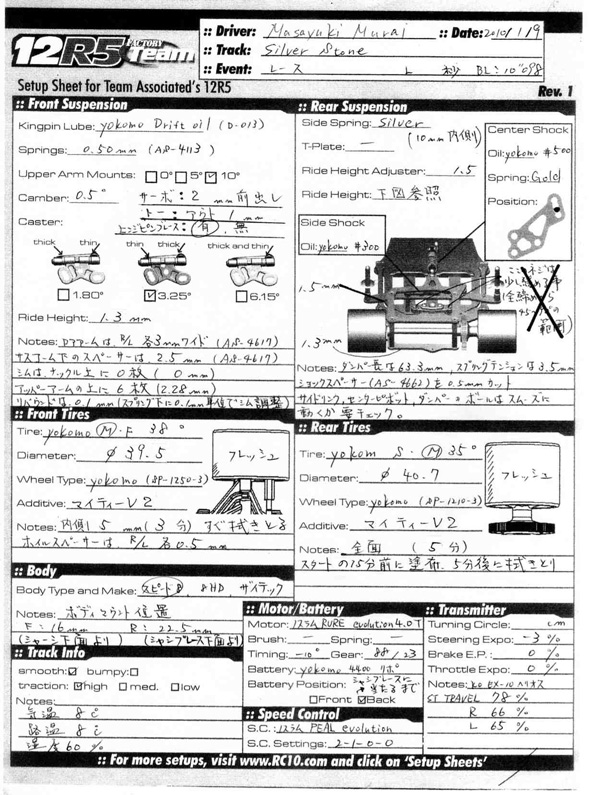 12R5 FACTORY Team
:: Driver: Masayuki Murai :: Date: 2010/1/9
:: Track: Silver Stone
:: Event: レース L 秒 BL: 10"098
Setup Sheet for Team Associated's 12R5
Rev. 1
:: Front Suspension
Kingpin Lube: yokomo Drift oil (D-013)
Springs: 0.50 mm (AS-4113)
Upper Arm Mounts: 0° 5° 10°
Camber: 0.5° サーボ: 2 mm 前出し
トー: アウト 1 mm
Caster: 有, 無
thick thin thin thick thick and thin
1.80° 3.25° 6.15°
Ride Height: 1.3 mm
Notes: ロアアームは, R/L 各3mmワイド (AS-4617)
サスアーム下のスペーサーは, 2.5 mm (AS-4617)
シムは, ナックル上に 0枚 ( 0 mm)
アッパーアームの上に 6枚 (2.28mm)
リバウンドは, 0.1mm (スプリング下に0.1mm単位でシム調整)
:: Rear Suspension
Side Spring: Silver
T-Plate: — (10mm 内側)
Ride Height Adjuster: 1.5
Ride Height: 下図参照
Center Shock
Oil: yokomo #500
Spring: Gold
Position:
Side Shock
Oil: yokomo #300
1.5 mm
1.3 mm
Notes: ダンパー長は63.3mm, スプリングテンションは3.5mm
ショックスペーサー (AS-4662) を0.5mmカット
サイドリンク, センターピボット, ダンパーのボールはスムーズに
動くか要チェック。
:: Front Tires
Tire: yokomo M・F 38°
Diameter: φ 39.5
フレッシュ
Wheel Type: yokomo (8P-1250-3)
Additive: マイティーV2
Notes: 内側 5 mm (3 分) すぐ拭きとる
ホイルスペーサーは, R/L 各0.5 mm
:: Rear Tires
Tire: yokom S・M 35°
Diameter: φ 40.7
フレッシュ
Wheel Type: yokomo (8P-1210-3)
Additive: マイティーV2
Notes: 全面 (5 分)
スタートの15分前に塗布, 5分後に拭きとり
:: Body
Body Type and Make: スピード8, 8HD, ザイテック
Notes: ボディマウント位置
F: 16mm R: 22.5mm
(シャーシ下面より) (シャーシブレース下面より)
:: Track Info
smooth: bumpy:
traction: high med. low
Notes:
気温 8℃
路温 8℃
湿度 60 %
:: Motor/Battery
Motor: evolution 4.0T
Brush: — Spring: —
Timing: -10° Gear: 88/23
Battery: yokomo 4400 リポ
Battery Position: シャシブレースに当たるまで
Front Back
:: Speed Control
S.C.: PEAL evolution
S.C. Settings: 2-1-0-0
:: Transmitter
Turning Circle: cm
Steering Expo: -3 %
Brake E.P.: 0 %
Throttle Expo: 0 %
Notes: KO EX-10 ヘリオス
ST TRAVEL 78 %
R 66 %
L 65 %
:: For more setups, visit www.RC10.com and click on 'Setup Sheets'